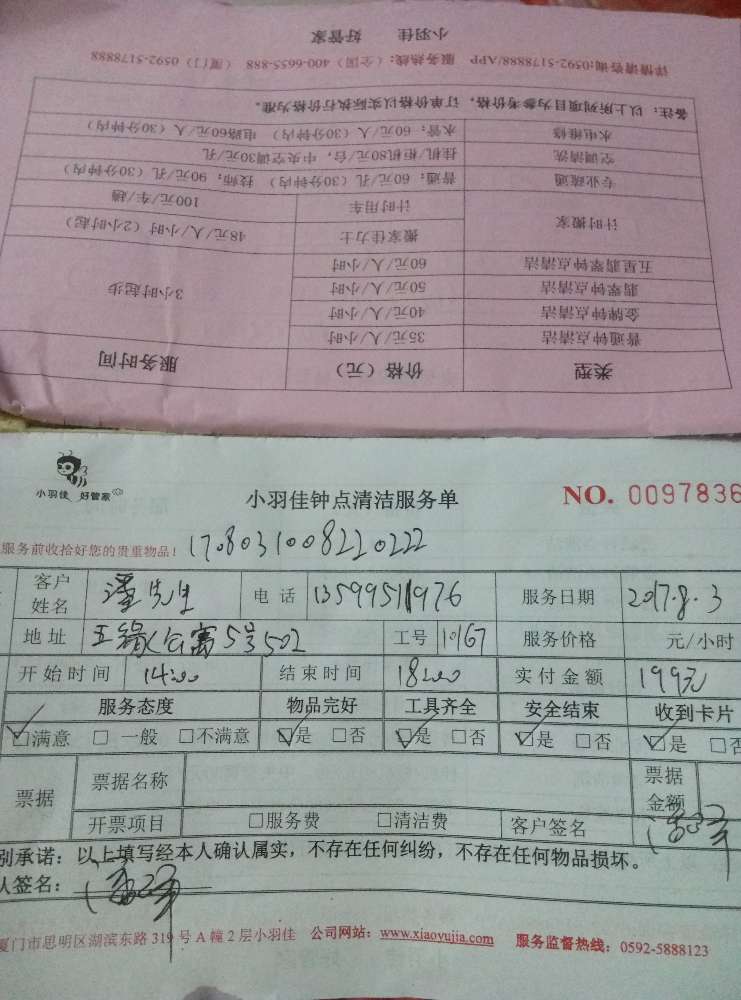 小羽佳 好管家
详情请咨询:0592-5178888/APP 服务热线:(全国)400-6655-888 (厦门)0592-5178888
类型 价格(元) 服务时间
普通钟点清洁 35元/人/小时 3小时起步
金牌钟点清洁 40元/人/小时
翡翠钟点清洁 50元/人/小时
五星翡翠钟点清洁 60元/人/小时
计时搬家 搬家佳力士 48元/人/小时(2小时起)
计时用车 100元/车/趟
专业疏通 普通:60元/孔(30分钟内) 技师:90元/孔(30分钟内)
空调清洗 挂机/柜机80元/台,中央空调30元/孔
水电维修 水管:60元/人(30分钟内) 电路60元/人(30分钟内)
备注:以上所列项目为参考价格,订单价格以实际执行价格为准。
小羽佳 好管家
小羽佳钟点清洁服务单 NO. 0097836
服务前收拾好您的贵重物品! 1708031008220222
客户姓名 潘先生 电话 13599511976 服务日期 2017.8.3
地址 五缘公寓5号502 工号 10167 服务价格 元/小时
开始时间 14:00 结束时间 18:00 实付金额 199元
服务态度 物品完好 工具齐全 安全结束 收到卡片
☑满意 □一般 □不满意 ☑是 □否 ☑是 □否 ☑是 □否 ☑是 □否
票据 票据名称 票据金额
开票项目 □服务费 □清洁费 客户签名
别承诺:以上填写经本人确认属实,不存在任何纠纷,不存在任何物品损坏。
人签名:
厦门市思明区湖滨东路319号A幢2层小羽佳 公司网站:www.xiaoyujia.com 服务监督热线:0592-5888123